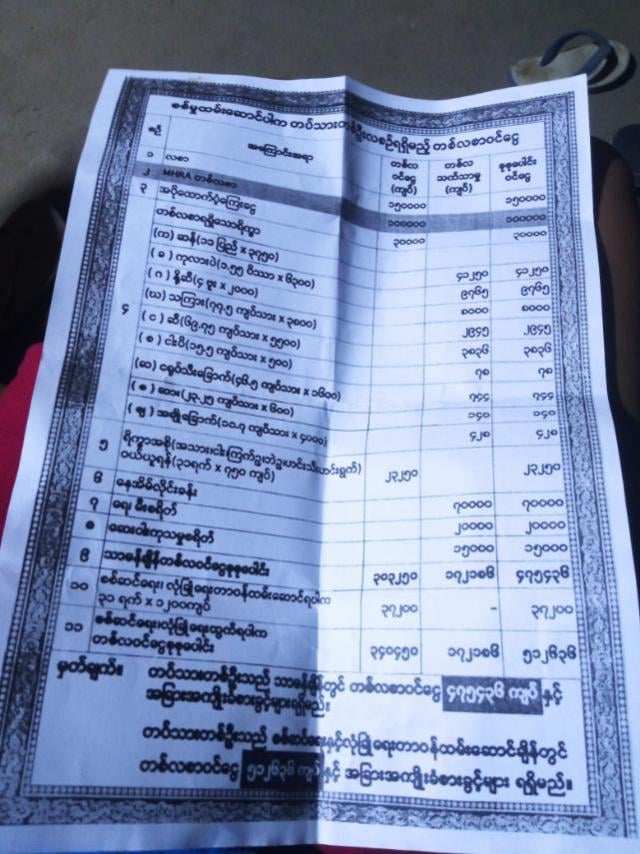 စစ်မှုထမ်းဆောင်ပါက တပ်သားတစ်ဦးလစဉ်ရရှိမည့် တစ်လစာဝင်ငွေ
စဉ် အကြောင်းအရာ တစ်လ ဝင်ငွေ (ကျပ်) တစ်လ သက်သာမှု (ကျပ်) စုစုပေါင်း ဝင်ငွေ
၁ လစာ ၁၅၀၀၀၀ ၁၅၀၀၀၀
၂ MHRA တစ်လစာ ၁၀၀၀၀၀ ၁၀၀၀၀၀
၃ အပိုထောက်ပံ့ကြေးငွေ ၃၀၀၀၀ ၃၀၀၀၀
၄ တစ်လစာရရှိသောရိက္ခာ
(က) ဆန်(၁၁ ပြည် x ၃၇၅၀) ၄၁၂၅၀ ၄၁၂၅၀
( ခ ) ကုလားပဲ(၁.၅၅ ပိဿာ x ၆၃၀၀) ၉၇၆၅ ၉၇၆၅
( ဂ ) နို့ဆီ(၄ ဗူး x ၂၀၀၀) ၈၀၀၀ ၈၀၀၀
(ဃ) သကြား(၇၇.၅ ကျပ်သား x ၃၈၀၀) ၂၉၄၅ ၂၉၄၅
( င ) ဆီ(၆၉.၇၅ ကျပ်သား x ၅၅၀၀) ၃၈၃၆ ၃၈၃၆
( စ ) ငါးပိ(၁၅.၅ ကျပ်သား x ၅၀၀) ၇၈ ၇၈
(ဆ) ငရုပ်သီးခြောက်(၄၆.၅ ကျပ်သား x ၁၆၀၀) ၇၄၄ ၇၄၄
( ဇ ) ဆား(၂၃.၂၅ ကျပ်သား x ၆၀၀) ၁၄၀ ၁၄၀
( ဈ ) အချိုခြောက်(၁၀.၇ ကျပ်သား x ၄၀၀၀) ၄၂၈ ၄၂၈
၅ ရိက္ခာအစို(အသားငါးကြက်ဥဟင်းသီးဟင်းရွက်)
ဝယ်ယူရန်(၃၁ရက် x ၇၅၀ ကျပ်) ၂၃၂၅၀ ၂၃၂၅၀
၆ နေအိမ်လိုင်းခန်း ၇၀၀၀၀ ၇၀၀၀၀
၇ ရေး မီးစရိတ် ၂၀၀၀၀ ၂၀၀၀၀
၈ ဆေးဝါးကုသမှုစရိတ် ၁၅၀၀၀ ၁၅၀၀၀
၉ သာမန်ချိန်တစ်လဝင်ငွေစုစုပေါင်း ၃၀၃၂၅၀ ၁၇၂၁၈၆ ၄၇၅၄၃၆
၁၀ စစ်ဆင်ရေး၊ လုံခြုံရေးတာဝန်ထမ်းဆောင်ရပါက
၃၁ ရက် x ၁၂၀၀ကျပ် ၃၇၂၀၀ – ၃၇၂၀၀
၁၁ စစ်ဆင်ရေး၊လုံခြုံရေးထွက်ရပါက
တစ်လဝင်ငွေစုစုပေါင်း ၃၄၀၄၅၀ ၁၇၂၁၈၆ ၅၁၂၆၃၆
မှတ်ချက်။ တပ်သားတစ်ဦးသည် သာမန်ချိန်တွင် တစ်လစာဝင်ငွေ ၄၇၅၄၃၆ ကျပ် နှင့်
အခြားအကျိုးခံစားခွင့်များရရှိမည်။
တပ်သားတစ်ဦးသည် စစ်ဆင်ရေးနှင့်လုံခြုံရေးတာဝန်ထမ်းဆောင်ချိန်တွင်
တစ်လစာဝင်ငွေ ၅၁၂၆၃၆ ကျပ် နှင့် အခြားအကျိုးခံစားခွင့်များ ရရှိမည်။